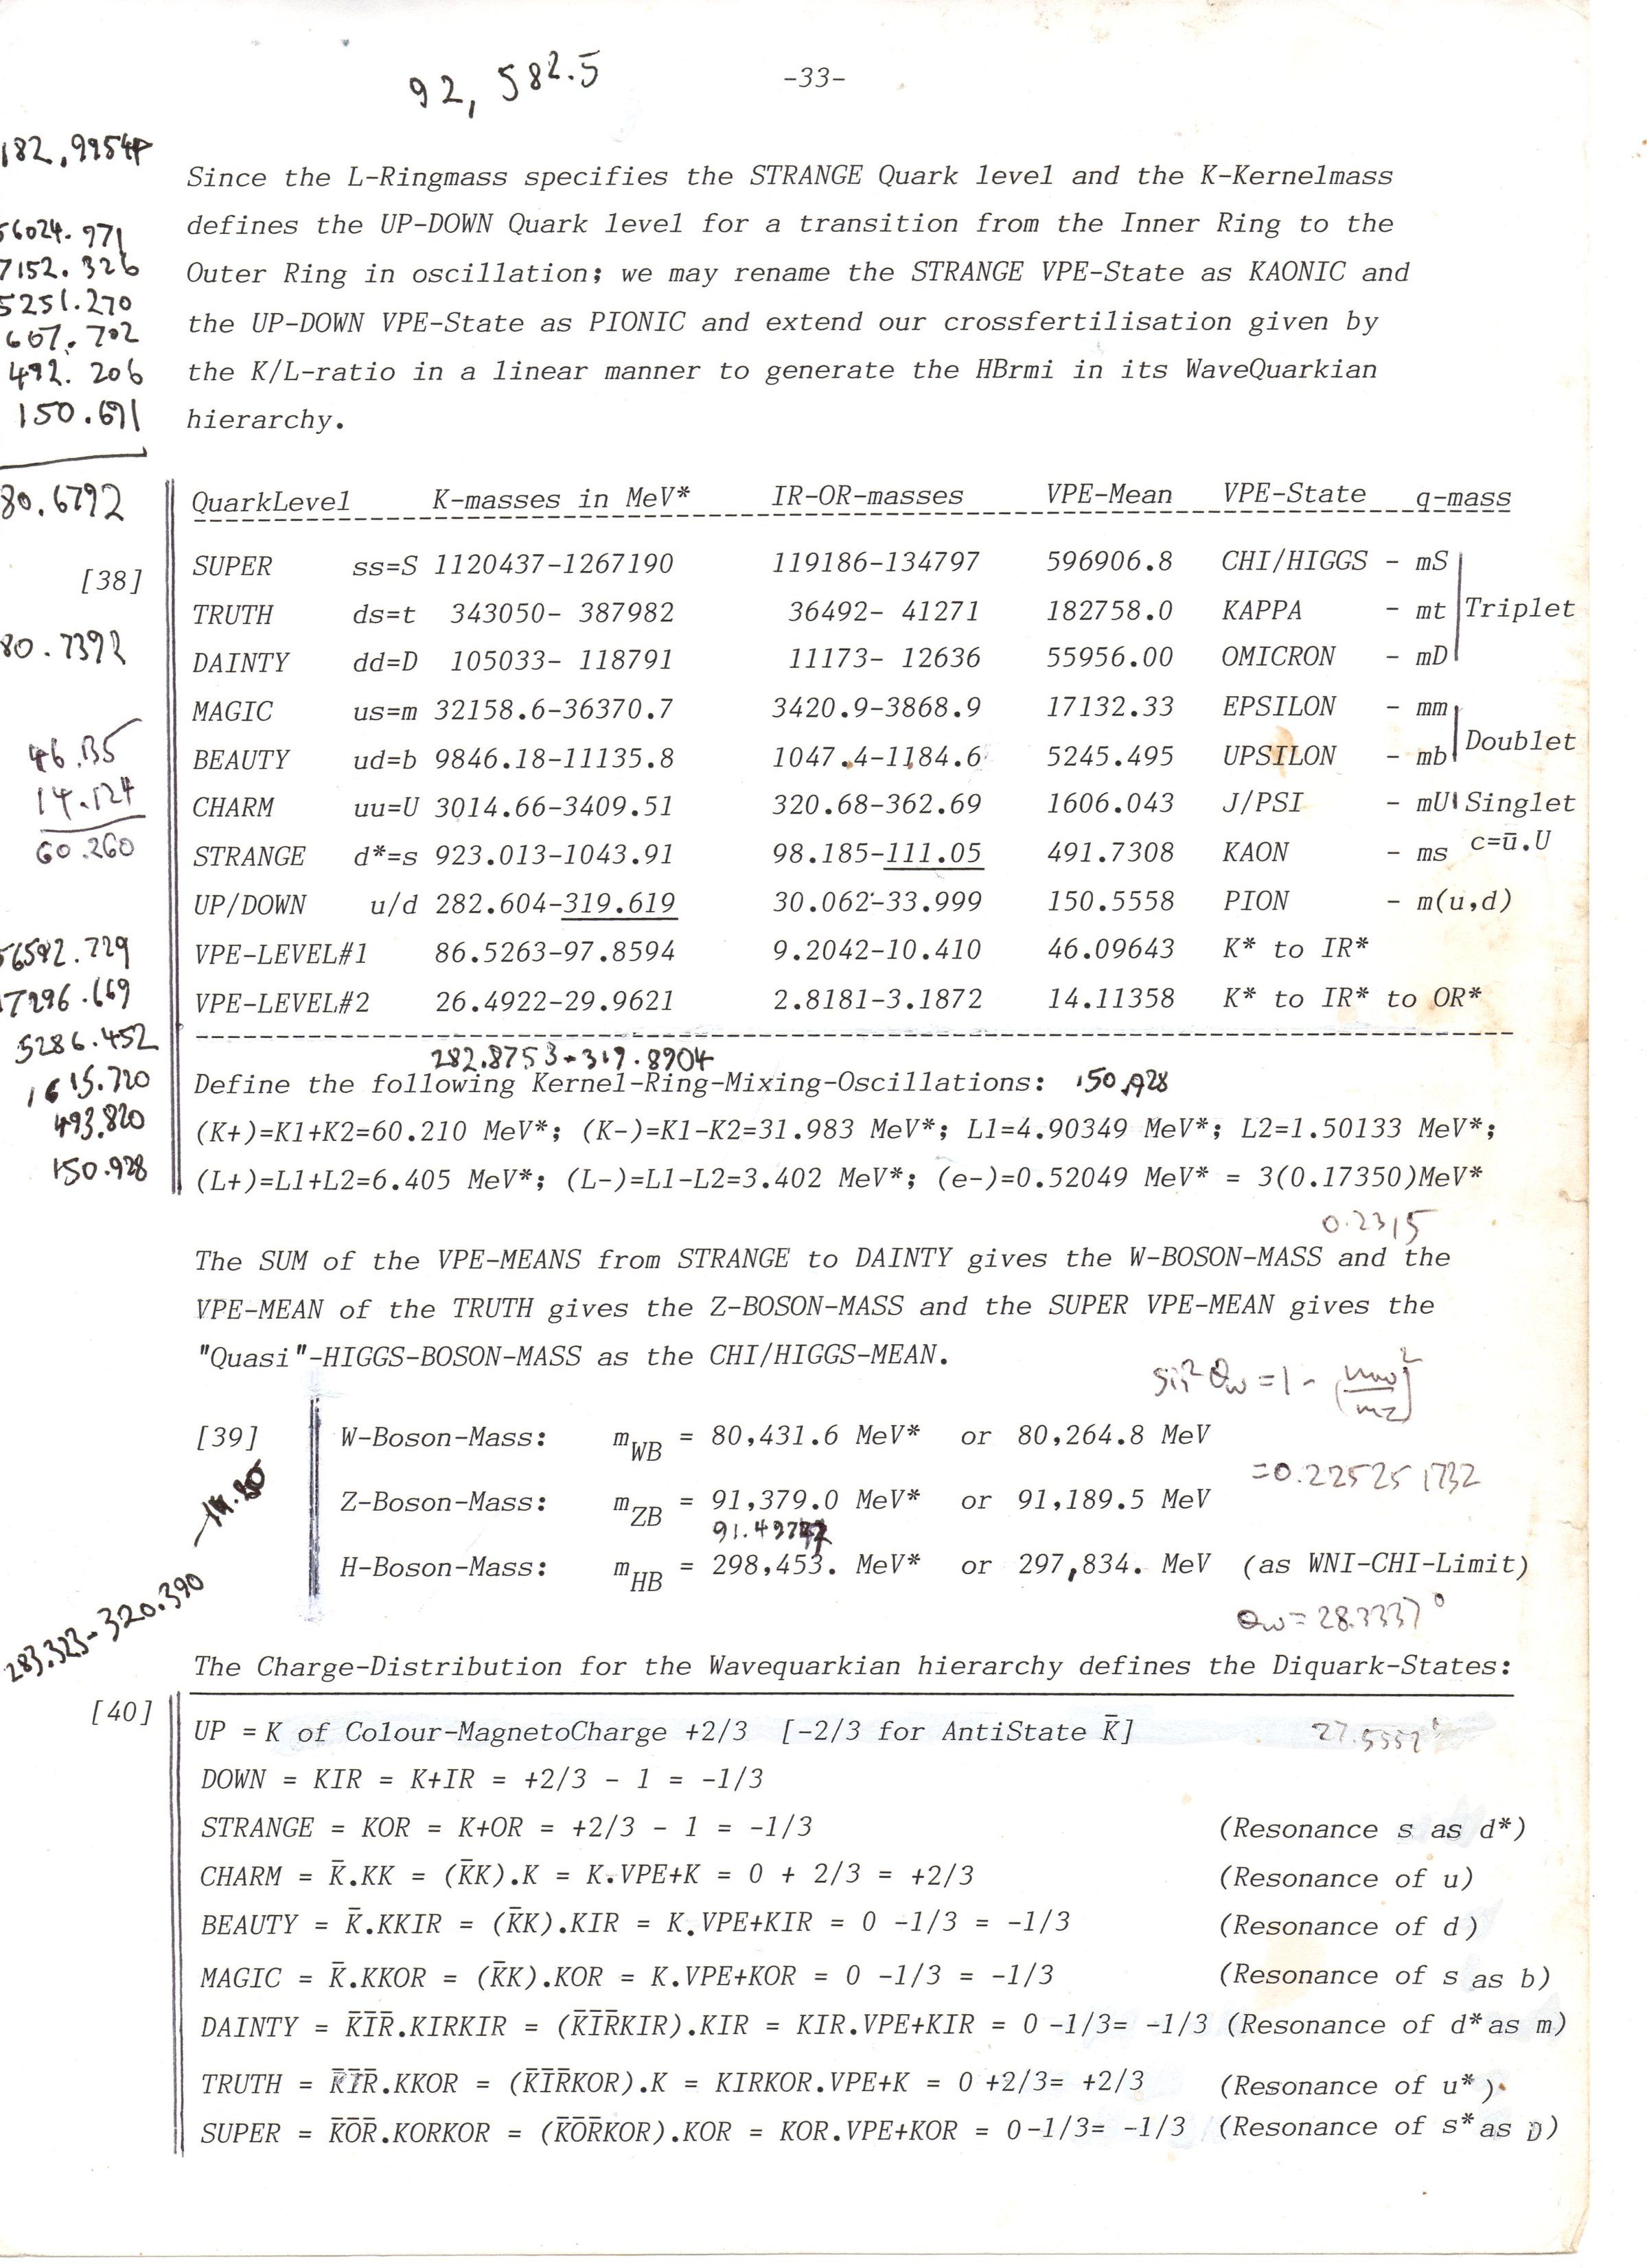 92, 582.5
-33-
182.9954
Since the L-Ringmass specifies the STRANGE Quark level and the K-Kernelmass
defines the UP-DOWN Quark level for a transition from the Inner Ring to the
Outer Ring in oscillation; we may rename the STRANGE VPE-State as KAONIC and
the UP-DOWN VPE-State as PIONIC and extend our crossfertilisation given by
the K/L-ratio in a linear manner to generate the HBrmi in its WaveQuarkian
hierarchy.
56024.971
7152.326
5251.270
607.702
492.206
150.691
80.6792
[38]
80.7392
46.135
14.124
60.260
56592.729
17296.669
5286.452
1615.720
493.820
150.928
QuarkLevel K-masses in MeV* IR-OR-masses VPE-Mean VPE-State q-mass
SUPER ss=S 1120437-1267190 119186-134797 596906.8 CHI/HIGGS - mS
TRUTH ds=t 343050- 387982 36492- 41271 182758.0 KAPPA - mt Triplet
DAINTY dd=D 105033- 118791 11173- 12636 55956.00 OMICRON - mD
MAGIC us=m 32158.6-36370.7 3420.9-3868.9 17132.33 EPSILON - mm
BEAUTY ud=b 9846.18-11135.8 1047.4-1184.6 5245.495 UPSILON - mb Doublet
CHARM uu=U 3014.66-3409.51 320.68-362.69 1606.043 J/PSI - mU Singlet
STRANGE d*=s 923.013-1043.91 98.185-111.05 491.7308 KAON - ms c=ū.U
UP/DOWN u/d 282.604-319.619 30.062-33.999 150.5558 PION - m(u,d)
VPE-LEVEL#1 86.5263-97.8594 9.2042-10.410 46.09643 K* to IR*
VPE-LEVEL#2 26.4922-29.9621 2.8181-3.1872 14.11358 K* to IR* to OR*
282.8753-319.8904
Define the following Kernel-Ring-Mixing-Oscillations: 150.928
(K+)=K1+K2=60.210 MeV*; (K-)=K1-K2=31.983 MeV*; L1=4.90349 MeV*; L2=1.50133 MeV*;
(L+)=L1+L2=6.405 MeV*; (L-)=L1-L2=3.402 MeV*; (e-)=0.52049 MeV* = 3(0.17350)MeV*
0.2315
The SUM of the VPE-MEANS from STRANGE to DAINTY gives the W-BOSON-MASS and the
VPE-MEAN of the TRUTH gives the Z-BOSON-MASS and the SUPER VPE-MEAN gives the
"Quasi"-HIGGS-BOSON-MASS as the CHI/HIGGS-MEAN.
sin²θw = 1 - (mw/mz)²
[39] W-Boson-Mass: mWB = 80,431.6 MeV* or 80,264.8 MeV
=0.225251732
Z-Boson-Mass: mZB = 91,379.0 MeV* or 91,189.5 MeV
H-Boson-Mass: mHB = 298,453. MeV* or 297,834. MeV (as WNI-CHI-Limit)
283.323-320.390
θw = 28.3337°
The Charge-Distribution for the Wavequarkian hierarchy defines the Diquark-States:
[40]
UP = K of Colour-MagnetoCharge +2/3 [-2/3 for AntiState K̄]
DOWN = KIR = K+IR = +2/3 - 1 = -1/3
STRANGE = KOR = K+OR = +2/3 - 1 = -1/3 (Resonance s as d*)
CHARM = K̄.KK = (K̄K).K = K.VPE+K = 0 + 2/3 = +2/3 (Resonance of u)
BEAUTY = K̄.KKIR = (K̄K).KIR = K.VPE+KIR = 0 -1/3 = -1/3 (Resonance of d)
MAGIC = K̄.KKOR = (K̄K).KOR = K.VPE+KOR = 0 -1/3 = -1/3 (Resonance of s as b)
DAINTY = K̄ĪR̄.KIRKIR = (K̄ĪR̄KIR).KIR = KIR.VPE+KIR = 0 -1/3= -1/3 (Resonance of d* as m)
TRUTH = K̄ĪR̄.KKOR = (K̄ĪR̄KOR).K = KIRKOR.VPE+K = 0 +2/3= +2/3 (Resonance of u*)
SUPER = K̄ŌR̄.KORKOR = (K̄ŌR̄KOR).KOR = KOR.VPE+KOR = 0-1/3= -1/3 (Resonance of s* as D)